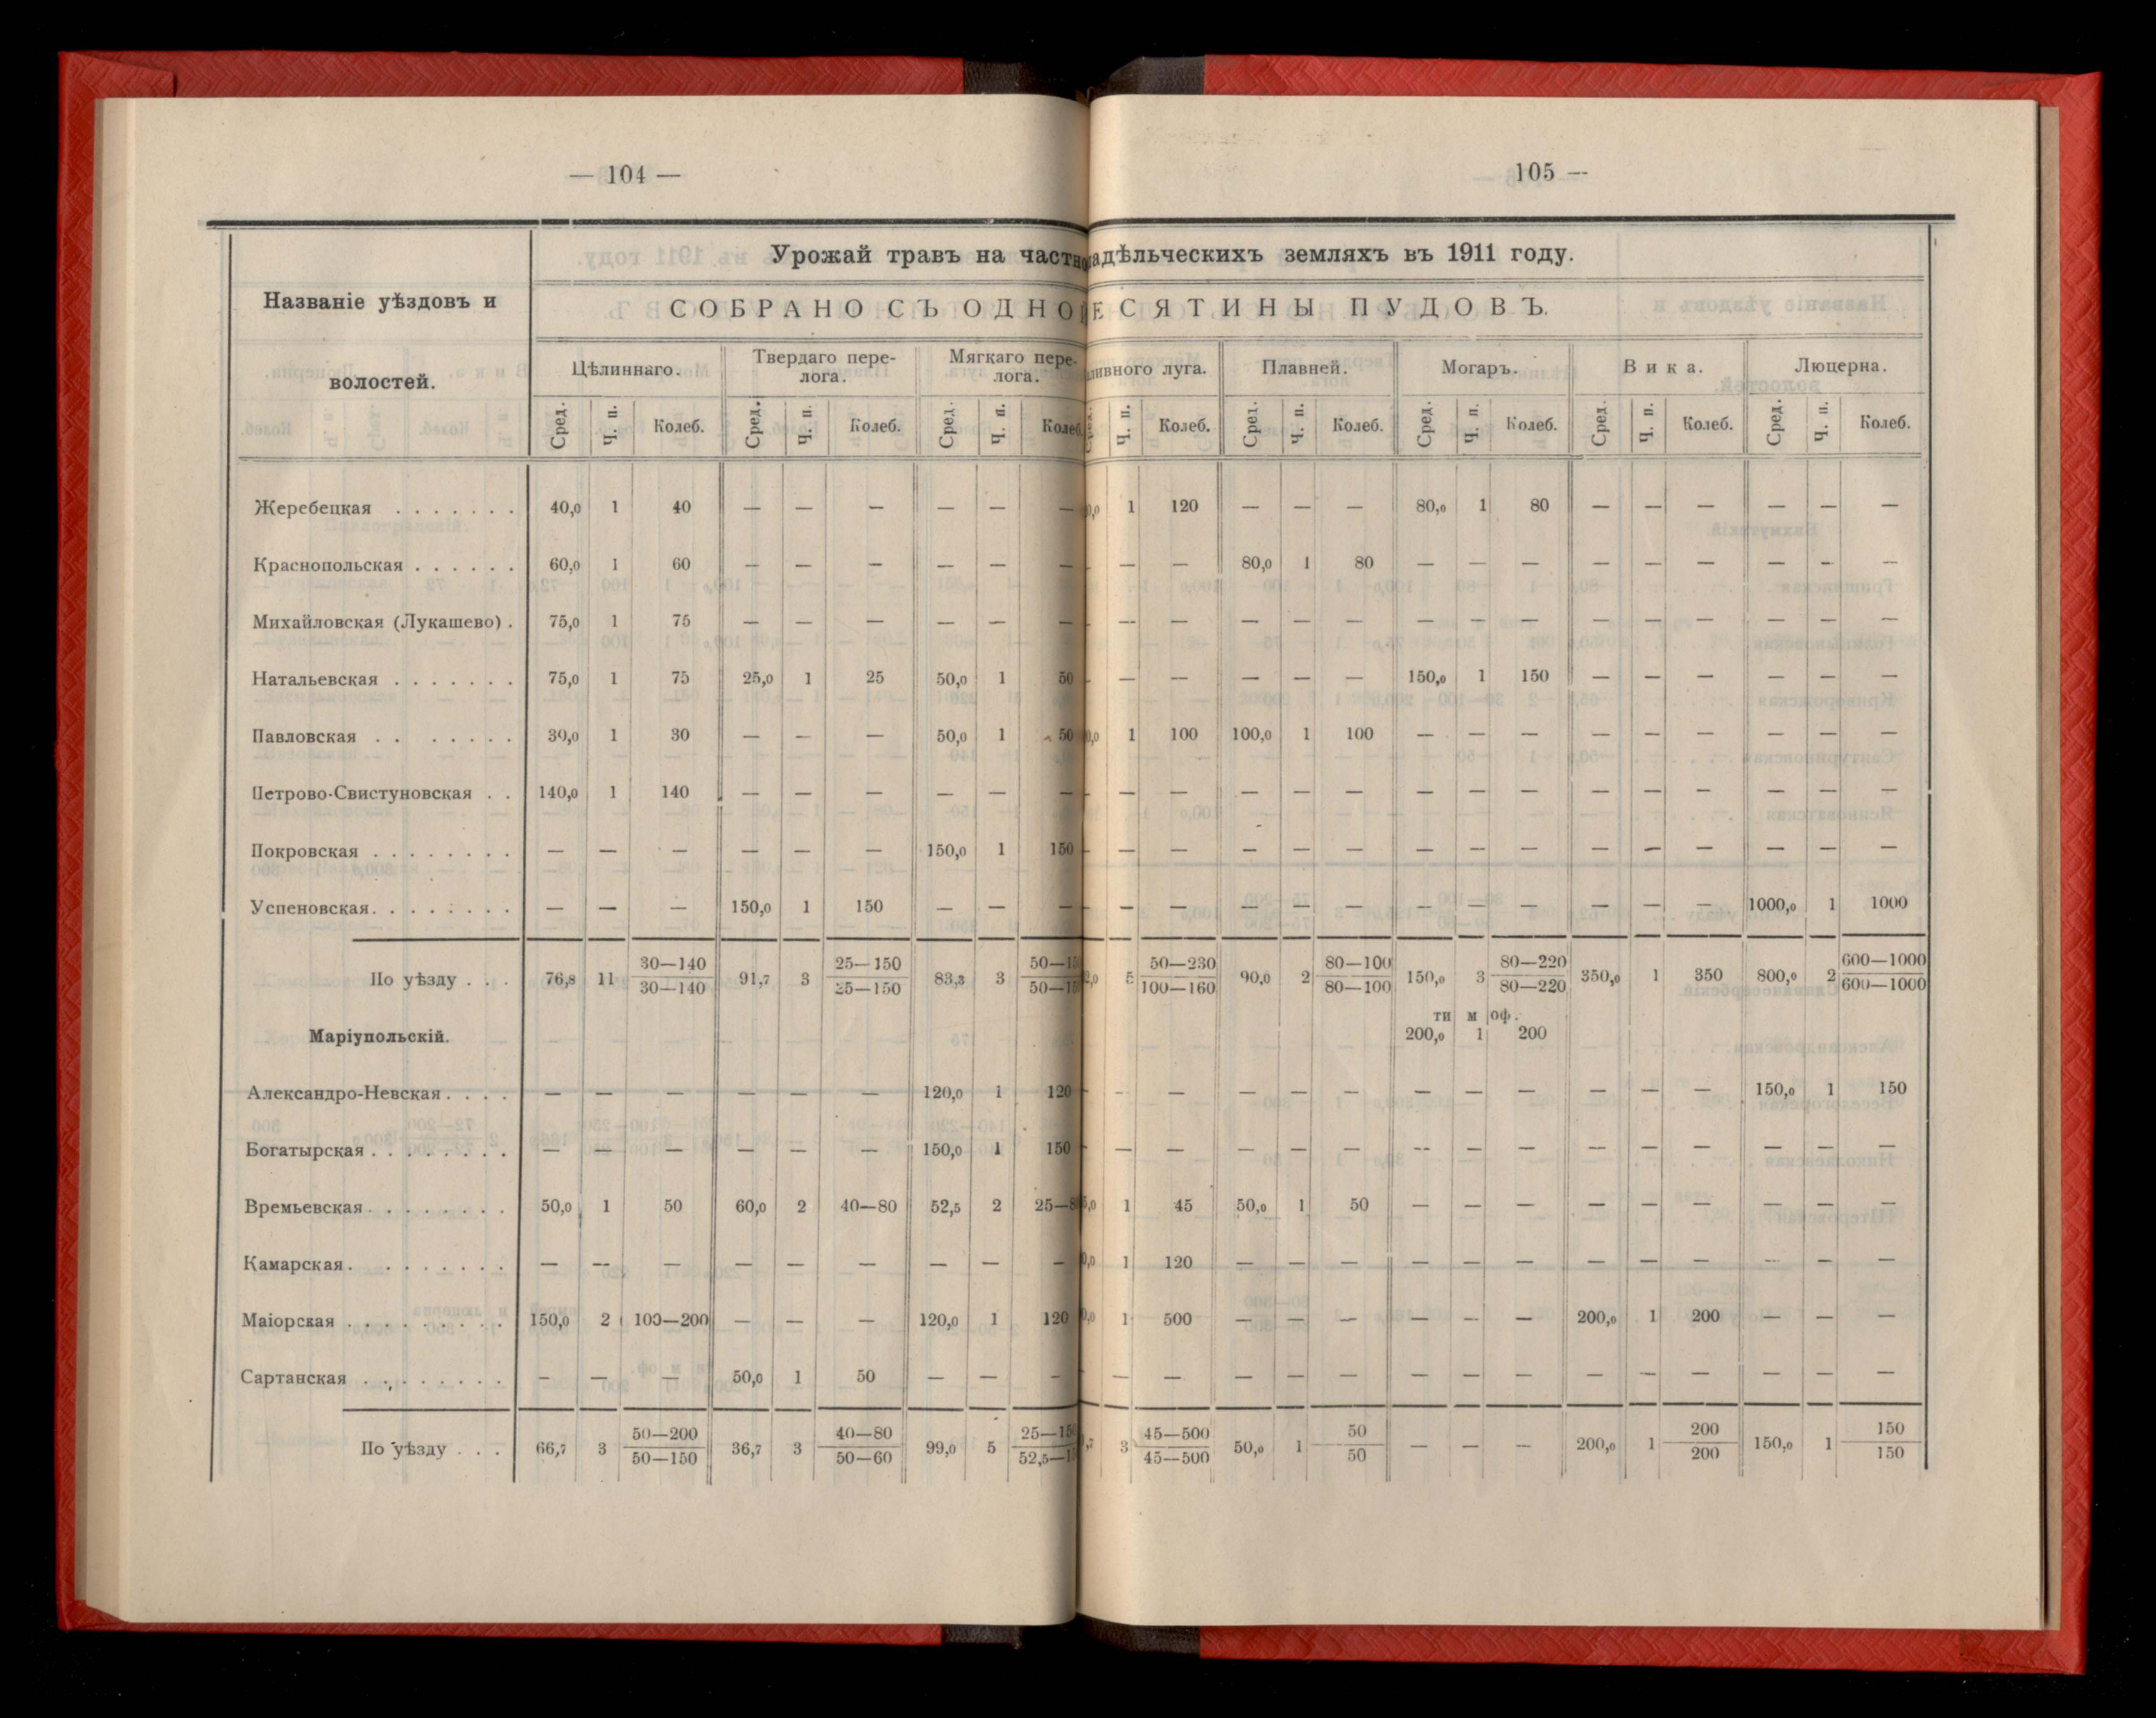 — 104 —
105 —
Урожай травъ на частно адѣльческихъ земляхъ въ 1911 году.
Названіе уѣздовъ и
волостей.
СОБРАНО СЪ ОДНО ЕСЯТИНЫ ПУДОВЪ.
Цѣлиннаго. Твердаго пере- Мягкаго пере- ливного луга. Плавней. Могаръ. Вика. Люцерна.
лога. лога.
Сред. Ч. п. Колеб. Сред. Ч. п. Колеб. Сред. Ч. п. Колеб. Ч. п. Колеб. Сред. Ч. п. Колеб. Сред. Ч. п. Колеб. Сред. Ч. п. Колеб. Сред. Ч. п. Колеб.
Жеребецкая . . . . . . . 40,0 1 40 — — — — — — 0,0 1 120 — — — 80,0 1 80 — — — — — —
Краснопольская . . . . . . 60,0 1 60 — — — — — — - — — 80,0 1 80 — — — — — — — — —
Михайловская (Лукашево) . 75,0 1 75 — — — — — — - — — — — — — — — — — — — — —
Натальевская . . . . . . . 75,0 1 75 25,0 1 25 50,0 1 50 - — — — — — 150,0 1 150 — — — — — —
Павловская . . . . . . . 30,0 1 30 — — — 50,0 1 50 0,0 1 100 100,0 1 100 — — — — — — — — —
Петрово-Свистуновская . . 140,0 1 140 — — — — — — - — — — — — — — — — — — — — —
Покровская . . . . . . . . 150,0 1 150
— — — — — — - — — — — — — — — — — — — — —
Успеновская. . . . . . . . — — — 150,0 1 150 — — — - — — — — — — — — — — — 1000,0 1 1000
По уѣзду . . . 76,8 11 30—140 91,7 3 25—150 83,3 3 50—15 2,0 5 50—230 90,0 2 80—100 150,0 3 80—220 350,0 1 350 800,0 2 600—1000
30—140 25—150 50—15 100—160 80—100 80—220 600—1000
ти м оф.
Маріупольскій. 200,0 1 200
Александро-Невская . . . . — — — — — — 120,0 1 120 - - — — — — — — — — — — 150,0 1 150
Богатырская . . . . . . . . — — — — — — 150,0 1 150 - — — — — — — — — — — — — — —
Времьевская . . . . . . . . 50,0 1 50 60,0 2 40—80 52,5 2 25—8 5,0 1 45 50,0 1 50 — — — — — — — — —
Камарская . . . . . . . . — — — — — — — — — 0,0 1 120 — — — — — — — — — — — —
Маіорская . . . . . . . . . 150,0 2 100—200 — — — 120,0 1 120 0,0 1 500 — — — — — — 200,0 1 200 — — —
Сартанская . . . . . . . . — — — 50,0 1 50 — — — - — — — — — — — — — — — — — —
По уѣзду . . . 66,7 3 50—200 36,7 3 40—80 99,0 5 25—150 ,7 3 45—500 50,0 1 50 — — — 200,0 1 200 150,0 1 150
50—150 50—60 52,5—1 45—500 50 200 150